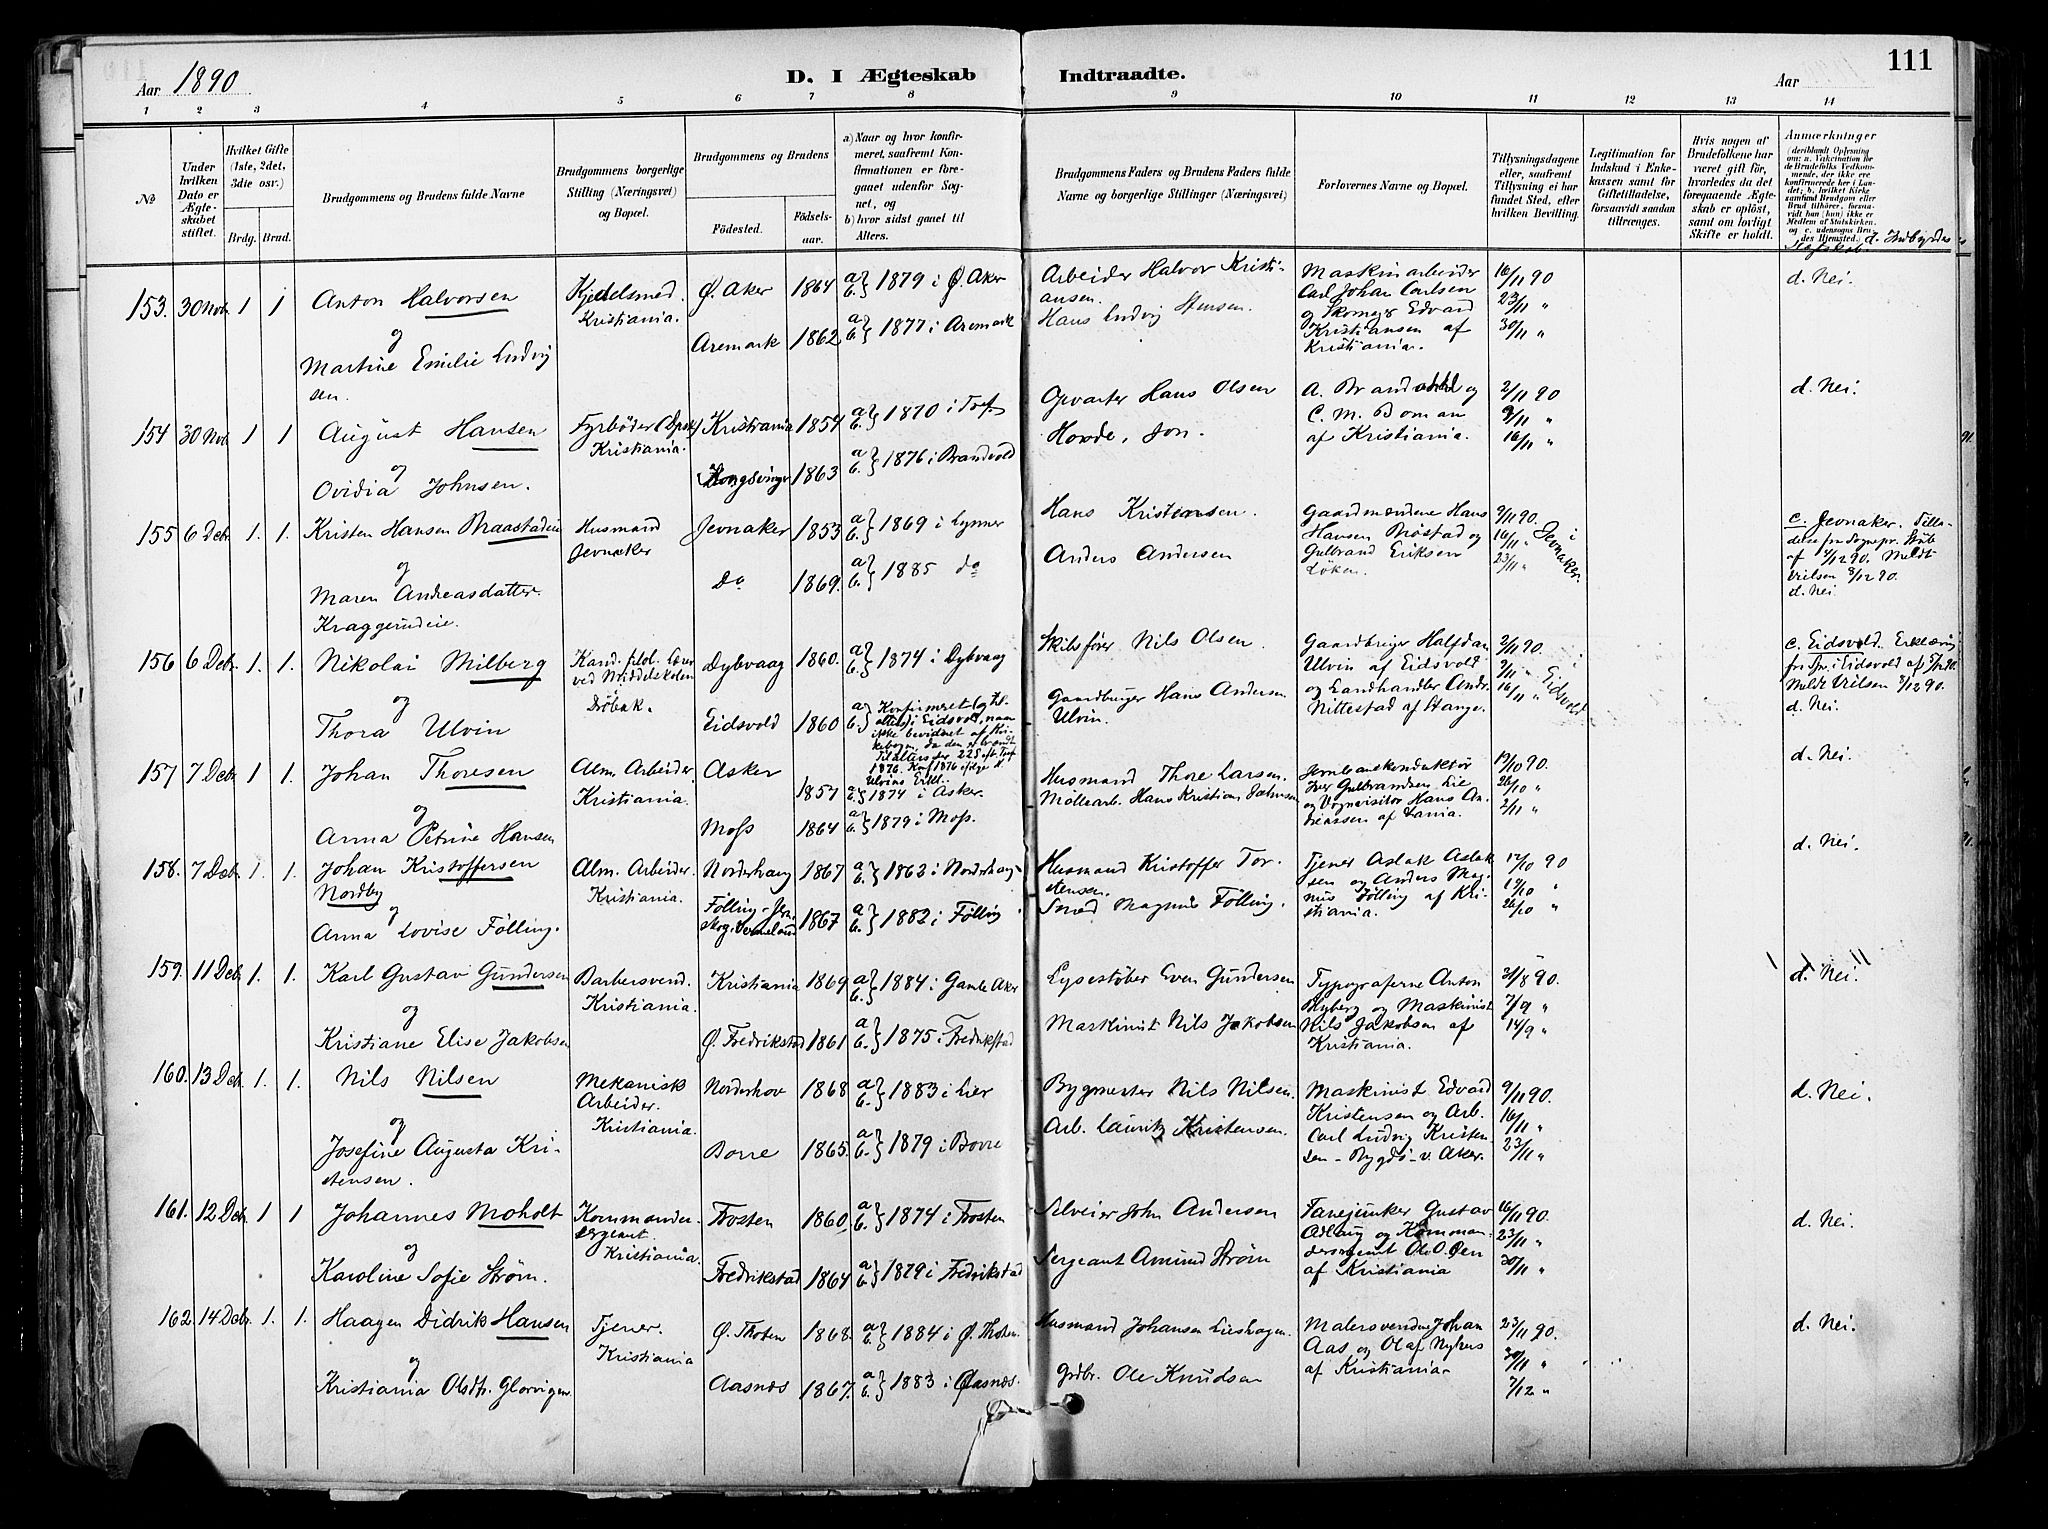 111
Aar 1890
D. I Ægteskab Indtraadte.
Aar
1 2 3 4 5 6 7 8 9 10 11 12 13 14
No
Under hvilken Dato er Ægteskabet stiftet.
Hvilket Gifte (1ste, 2det, 3die osv.)
Brdg. Brud.
Brudgommens og Brudens fulde Navne
Brudgommens borgerlige Stilling (Næringsvei) og Bopæl.
Brudgommens og Brudens
Fødested.
Fødselsaar.
a) Naar og hvor konfirmeret, saafremt Konfirmationen er foregaaet udenfor Sognet, og
b) hvor sidst gaaet til Alters.
Brudgommens Faders og Brudens Faders fulde Navne og borgerlige Stillinger (Næringsvei)
Forlovernes Navne og Bopæl.
Tillysningsdagene eller, saafremt Tillysning ei har fundet Sted, efter hvilken Bevilling.
Legitimation for Indskud i Enkekassen samt for Giftetilladelse, forsaavidt saadan tiltrænges.
Hvis nogen af Brudefolkene har været gift før, hvorledes da det foregaaende Ægteskab er opløst, samt om lovligt Skifte er holdt.
Anmærkninger (deriblandt Oplysning om: a. Vakcination for de Brudefolks Vedkommende, der ikke ere konfirmerede her i Landet; b. hvilket Kirkesamfund Brudgom eller Brud tilhører, forsaavidt han (hun) ikke er Medlem af Statskirken, og c. udensogns Brudes Hjemsted.) d. Indbyrdes
153. 30 Nob. 1 1 Anton Halvorsen Kjedelsmed. Ø. Aker 1864 a b. } 1879 i Ø. Aker Arbeider Halvor Kristiansen. Maskinarbeider 16/11 90 d. Nei.
Kristiania. Carl Johan Carlsen 23/11 "
og Aremark 1862 a b. } 1877 i Aremark Hans Ludvig Hensen. og Skomag. Edvard Kristiansen af Kristiania. 30/11 "
Martine Emilie Ludvigsen.
154 30 Nob 1 1 August Hansen Fyrbøder Kristiania 1854 a b. } 1870 i Opvarter Hans Olsen A. og 2/11 90 d. Nei.
Kristiania. C. M. Boman 9/11 "
og Kongsvinger 1863 a b. } 1876 i Brandvold af Kristiania. 16/11 "
Ovidia Johnsen.
155 6 Deb. 1. 1. Kristen Hansen Braastadeie Husmand Jevnaker 1853 a b. } 1869 i Lynner Hans Kristiansen. Gaardmændene Hans 9/11 90. i Jevnaker. c. Jevnaker. Tilladelse fra Sognepr.
Jevnaker Hansen Brøstad og 16/11 " af 4/12 90. Meldt
og Do 1869. a b. } 1885 do Anders Andersen Gulbrand Eriksen Løken. 23/11 " Vielsen 8/12 90.
Maren Andreasdatter Kraggerudeie. d. Nei.
156 6 Deb. 1. 1. Nikolai Milberg Kand. filol. Lærer Dybvaag 1860. a b. } 1874 i Dybvaag Skibsfører Nils Olsen Gaardbruger Halfdan 2/11 90. i Eidsvold c. Eidsvold. Erklæring
ved Middelskolen Ulvin af Eidsvold 9/11 " fra Spr. i Eidsvold af 5/12 90.
og Drøbak. Eidsvold 1860 a b. } Konfirmeret Gaardbruger Hans Andersen Ulvin. og Landhandler Andr. Nittestad af Stange. 16/11 " Meldt Vielsen 8/12 90.
Thora Ulvin d. Nei.
157 7 Deb. 1 1. Johan Thoresen Alm. Arbeider Asker 1857 a b. } 1874 i Asker. Husmand Thore Larsen. Jernbanekonduktør 19/10 90. d. Nei.
Kristiania. Iver Gulbrandsen Lie 26/10 "
og Moss 1864 a b. } 1879 i Moss. Møllearb. Hans Kristian Johnsen og Vognvisitør Hans Andreassen 2/11 "
Anna Petrine Hansen
158. 7 Deb. 1. 1. Johan Kristoffersen Nordby Alm. Arbeider. Norderhaug 1867 a b. } 1862 i Norderhaug Husmand Kristoffer Torstensen. Tjener Aslak Aslaksen 12/10 90 d. Nei.
Kristiania. og Anders Magnus 19/10 "
og Følling 1867 a b. } 1882 i Følling Smed Magnus Følling. Følling af Kristiania. 26/10 "
Anna Lovise Følling.
159. 11 Deb. 1. 1. Karl Gustav Gundersen Barbersvend. Kristiania 1869 a b. } 1884 i Gamle Aker Lysestøber Even Gundersen Typograferne Anton 31/8 90. d. Nei.
Kristiania. Myberg og Maskinist 7/9 "
og Ø. Fredrikstad 1861 a b. } 1875 i Fredrikstad Maskinist Nils Jakobsen Nils Jakobsen af Kristiania. 14/9 "
Kristiane Elise Jakobsen
160. 13 Deb. 1. 1. Nils Nilsen Mekanisk Arbeider. Norderhov 1868 a b. } 1883 i Lier Bygmester Nils Nilsen. Maskinist Edvard 9/11 90. d. Nei.
Kristiania. Kristensen og Arb. 16/11 "
og Borre 1865. a b. } 1879 i Borre Arb. Lauritz Kristensen. Carl Ludvig Kristensen - Bygdø - v. Aker. 23/11 "
Josefine Augusta Kristensen.
161. 12 Deb. 1 1 Johannes Moholt Kommandersergeant Frosten 1860 a b. } 1874 i Frosten Selveier John Andersen Fanejunker Gustav 16/11 90. d. Nei.
Kristiania og Kommandersergeant 23/11 "
og Fredrikstad 1864 a b. } 1879 i Fredrikstad Sergeant Amund Strøm Ol. O. Øen af Kristiania 30/11 "
Karoline Sofie Strøm.
162. 14 Deb. 1. 1. Haagen Didrik Hansen Tjener. Ø. Thoten 1868. a b. } 1884 i Ø. Thoten. Husmand Johansen Lieshagen. Malersvendne Johan 23/11 90. d. Nei.
Kristiania Aas og Olaf Nyhus 30/11 "
og Aasnæs 1867. a b. } 1883 i Aasnæs. Grdbr. Ole Knudsen af Kristiania 7/12 "
Kristiania Olsdtr. Glorvigen